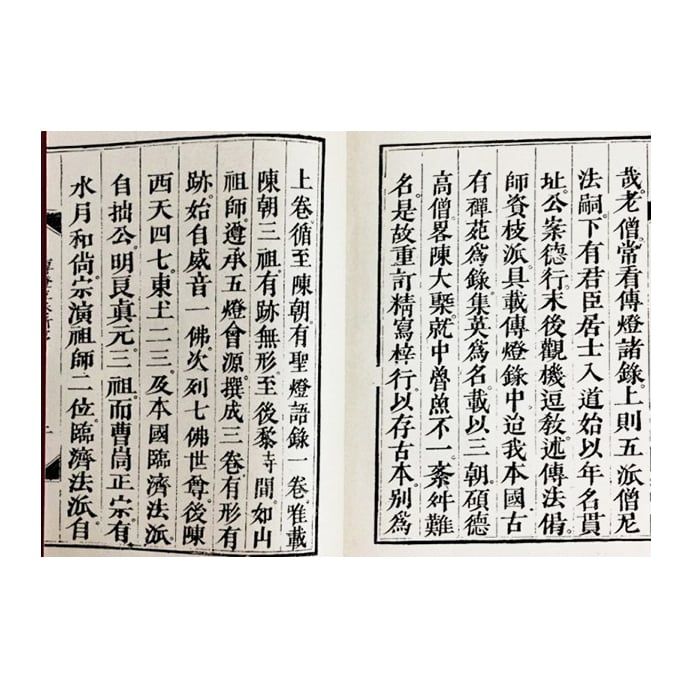 哉老僧常看傳燈諸錄上則五派僧尼
法嗣下有君臣居士入道始以年名貫
址公案德行末後觀機逗教述傳法偈
師資枝派具載傳燈錄中迨我本國古
有禪苑為錄集英為名載以三朝碩德
高僧畧陳大槩就中魯魚不一紊紏難
名是故重訂精寫梓行以存古本別為
上卷循至陳朝有聖燈語錄一卷唯載
陳朝三祖有跡無形至後黎寺間如山
祖師遵承五燈會源撰成三卷有形有
跡始自威音一佛次列七佛世尊後陳
西天四七東土二三及本國臨濟法派
自拙公明良真元三祖而曹洞正宗有
水月和尚宗演祖師二位臨濟法派自